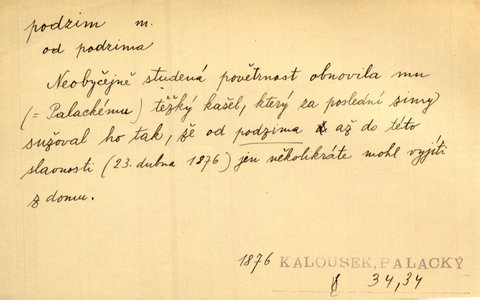 podzim m.
od podzima
Neobyčejně studená povětrnost obnovila mu
(= Palackému) těžký kašel, který za poslední zimy
sužoval ho tak, že od podzima až do této
slavnosti (23. dubna 1876) jen několikráte mohl vyjíti
z domu.
1876 KALOUSEK, PALACKÝ
34,34